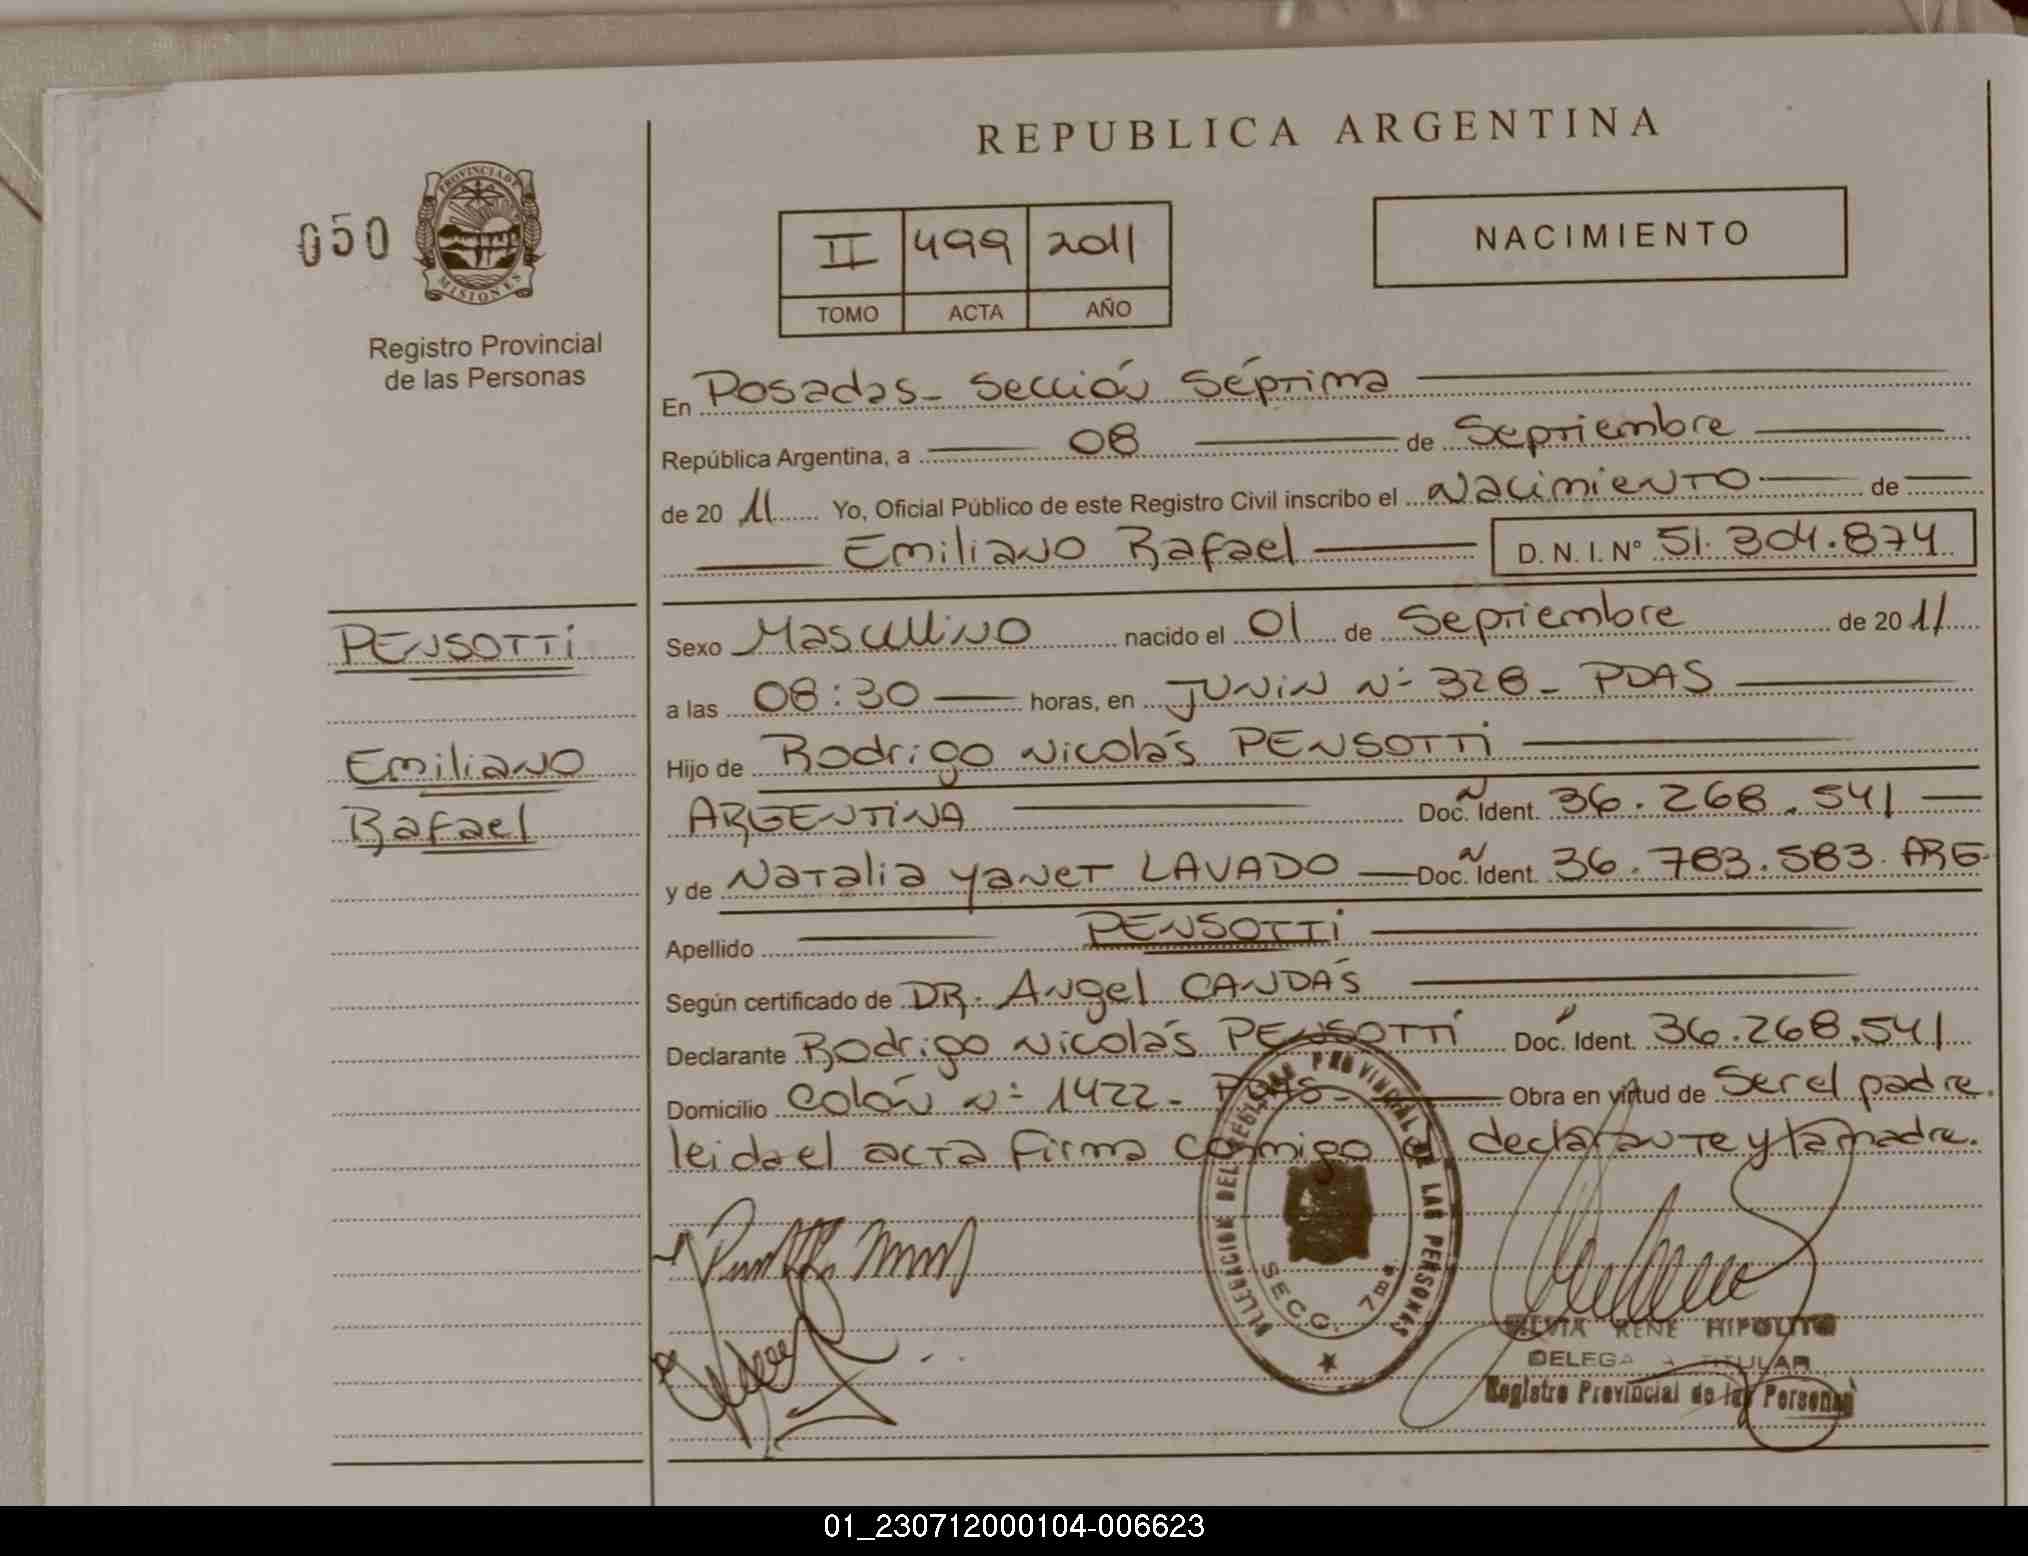 REPUBLICA ARGENTINA
050
PROVINCIA DE
MISIONES
Registro Provincial
de las Personas
II 499 2011
TOMO ACTA AÑO
NACIMIENTO
En Posadas - Sección Séptima
República Argentina, a 08 de Septiembre
de 20 11 Yo, Oficial Público de este Registro Civil inscribo el Nacimiento de
Emiliano Rafael D. N. I. N° 51.304.874
PENSOTTI
Emiliano
Rafael
Sexo Masculino nacido el 01 de Septiembre de 20 11
a las 08:30 horas, en JUNIN Nº 328 - PDAS
Hijo de Rodrigo Nicolás PENSOTTI
ARGENTINA Doc. Ident. 36.268.541
y de Natalia Yanet LAVADO Doc. Ident. 36.783.583. ARG.
Apellido PENSOTTI
Según certificado de DR. Angel CANDÁS
Declarante Rodrigo Nicolás PENSOTTI Doc. Ident. 36.268.541
Domicilio Colón Nº 1422 - PDAS - Obra en virtud de Ser el padre.
leida el acta firma conmigo el declarante y la madre.
DELEGACION DEL REGISTRO PROVINCIAL DE LAS PERSONAS
SECC. 7ma
SILVIA RENE HIPOLITO
DELEGADA TITULAR
Registro Provincial de las Personas
01_230712000104-006623